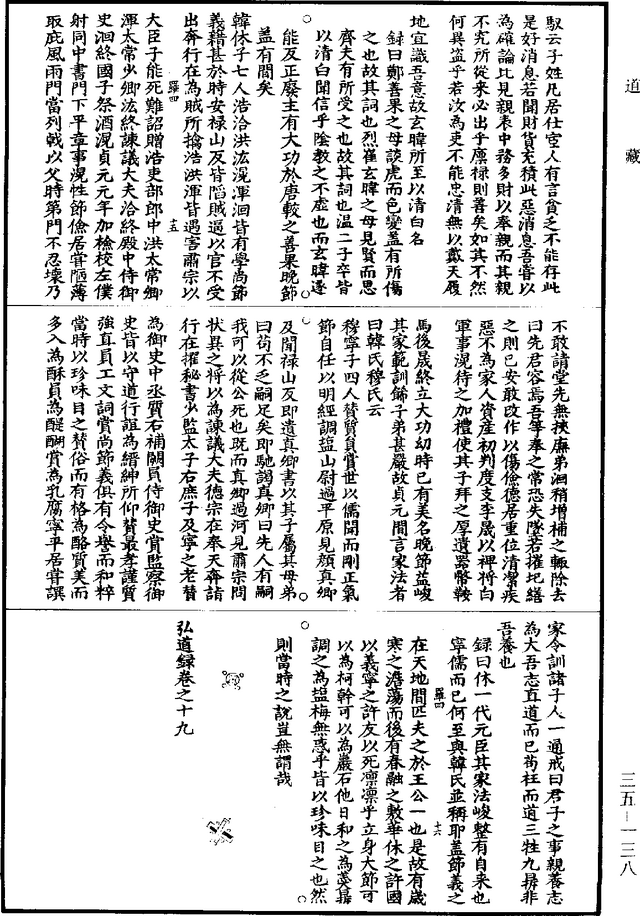 道藏
馭云子姓凡居仕宦人有言貧乏不能存此
是好消息若聞財貨充積此惡消息吾嘗以
為確論比見親表中務多財以奉親而其親
不究所從來必出乎廩祿則善矣如其不然
何異盜乎若汝為吏不能忠清無以戴天履
地宜識吾意故玄暐所至以清白名
録曰鄭善果之母談虎而色變蓋有所傷
之也故其詞也烈崔玄暐之母見賢而思
齊夫有所受之也故其詞也温二子卒皆
以清白聞信乎陰教之不虛也而玄暐遂
能反正廢主有大功於唐較之善果晚節
蓋有間矣
韓休子七人浩洽洪汯滉渾洄皆有學尚節
義籍甚於時安禄山反皆陷賊逼以官不受
出奔行在為賊所擒浩洪渾皆遇害肅宗以
羅四 十五
大臣子能死難詔贈浩吏部郎中洪太常卿
渾太常少卿汯終諫議大夫洽終殿中侍御
史洄終國子祭酒滉貞元元年加檢校左僕
射同中書門下平章事滉性節儉居室陋薄
取庇風雨門當列戟以父時第門不忍壞乃
不敢請堂先無挾廡弟洄稍增補之輙除去
曰先君容焉吾等奉之常恐失墜若摧圮繕
之則已安敢改作以傷儉德居重位清潔疾
惡不為家人資產初判度支李晟以裨將白
軍事滉待之加禮使其子拜之厚遺器幣鞍
馬後晟終立大功幼時已有美名晚節益峻
其家範訓飭子弟甚嚴故貞元間言家法者
曰韓氏穆氏云
穆寧子四人贊質員賞世以儒聞而剛正氣
節自任以明經調鹽山尉過平原見顏真卿
及聞禄山反即遺真卿書以其子屬其母弟
曰苟不乏嗣足矣即馳謁真卿曰先人有嗣
我可以從公死也既而真卿過河見肅宗問
狀異之將以為諫議大夫德宗在奉天奔詣
行在擢秘書少監太子右庶子及寧之老贊
為御史中丞質右補闕員侍御史賞監察御
史皆以守道行誼為縉紳所仰贊最孝謹質
強直員工文詞賞尚節義俱有令譽而和粹
當時以珍味目之贊俗而有格為酪質美而
多入為酥員為醍醐賞為乳腐寧平居嘗譔
家令訓諸子人一通戒曰君子之事親養志
為大吾志直道而已苟枉而道三牲九鼎非
吾養也
録曰休一代元臣其家法峻整有自来也
寧儒而已何至與韓氏並稱耶蓋節義之
羅四 十六
在天地間匹夫之於王公一也是故有歲
寒之澹蕩而後有春融之敷華休之許國
以義寧之許友以死凛凛乎立身大節可
以為柯幹可以為巖石他日和之為羮鼎
調之為塩梅無惑乎皆以珍味目之也然
則當時之說豈無謂哉
弘道録卷之十九
三五－一三八